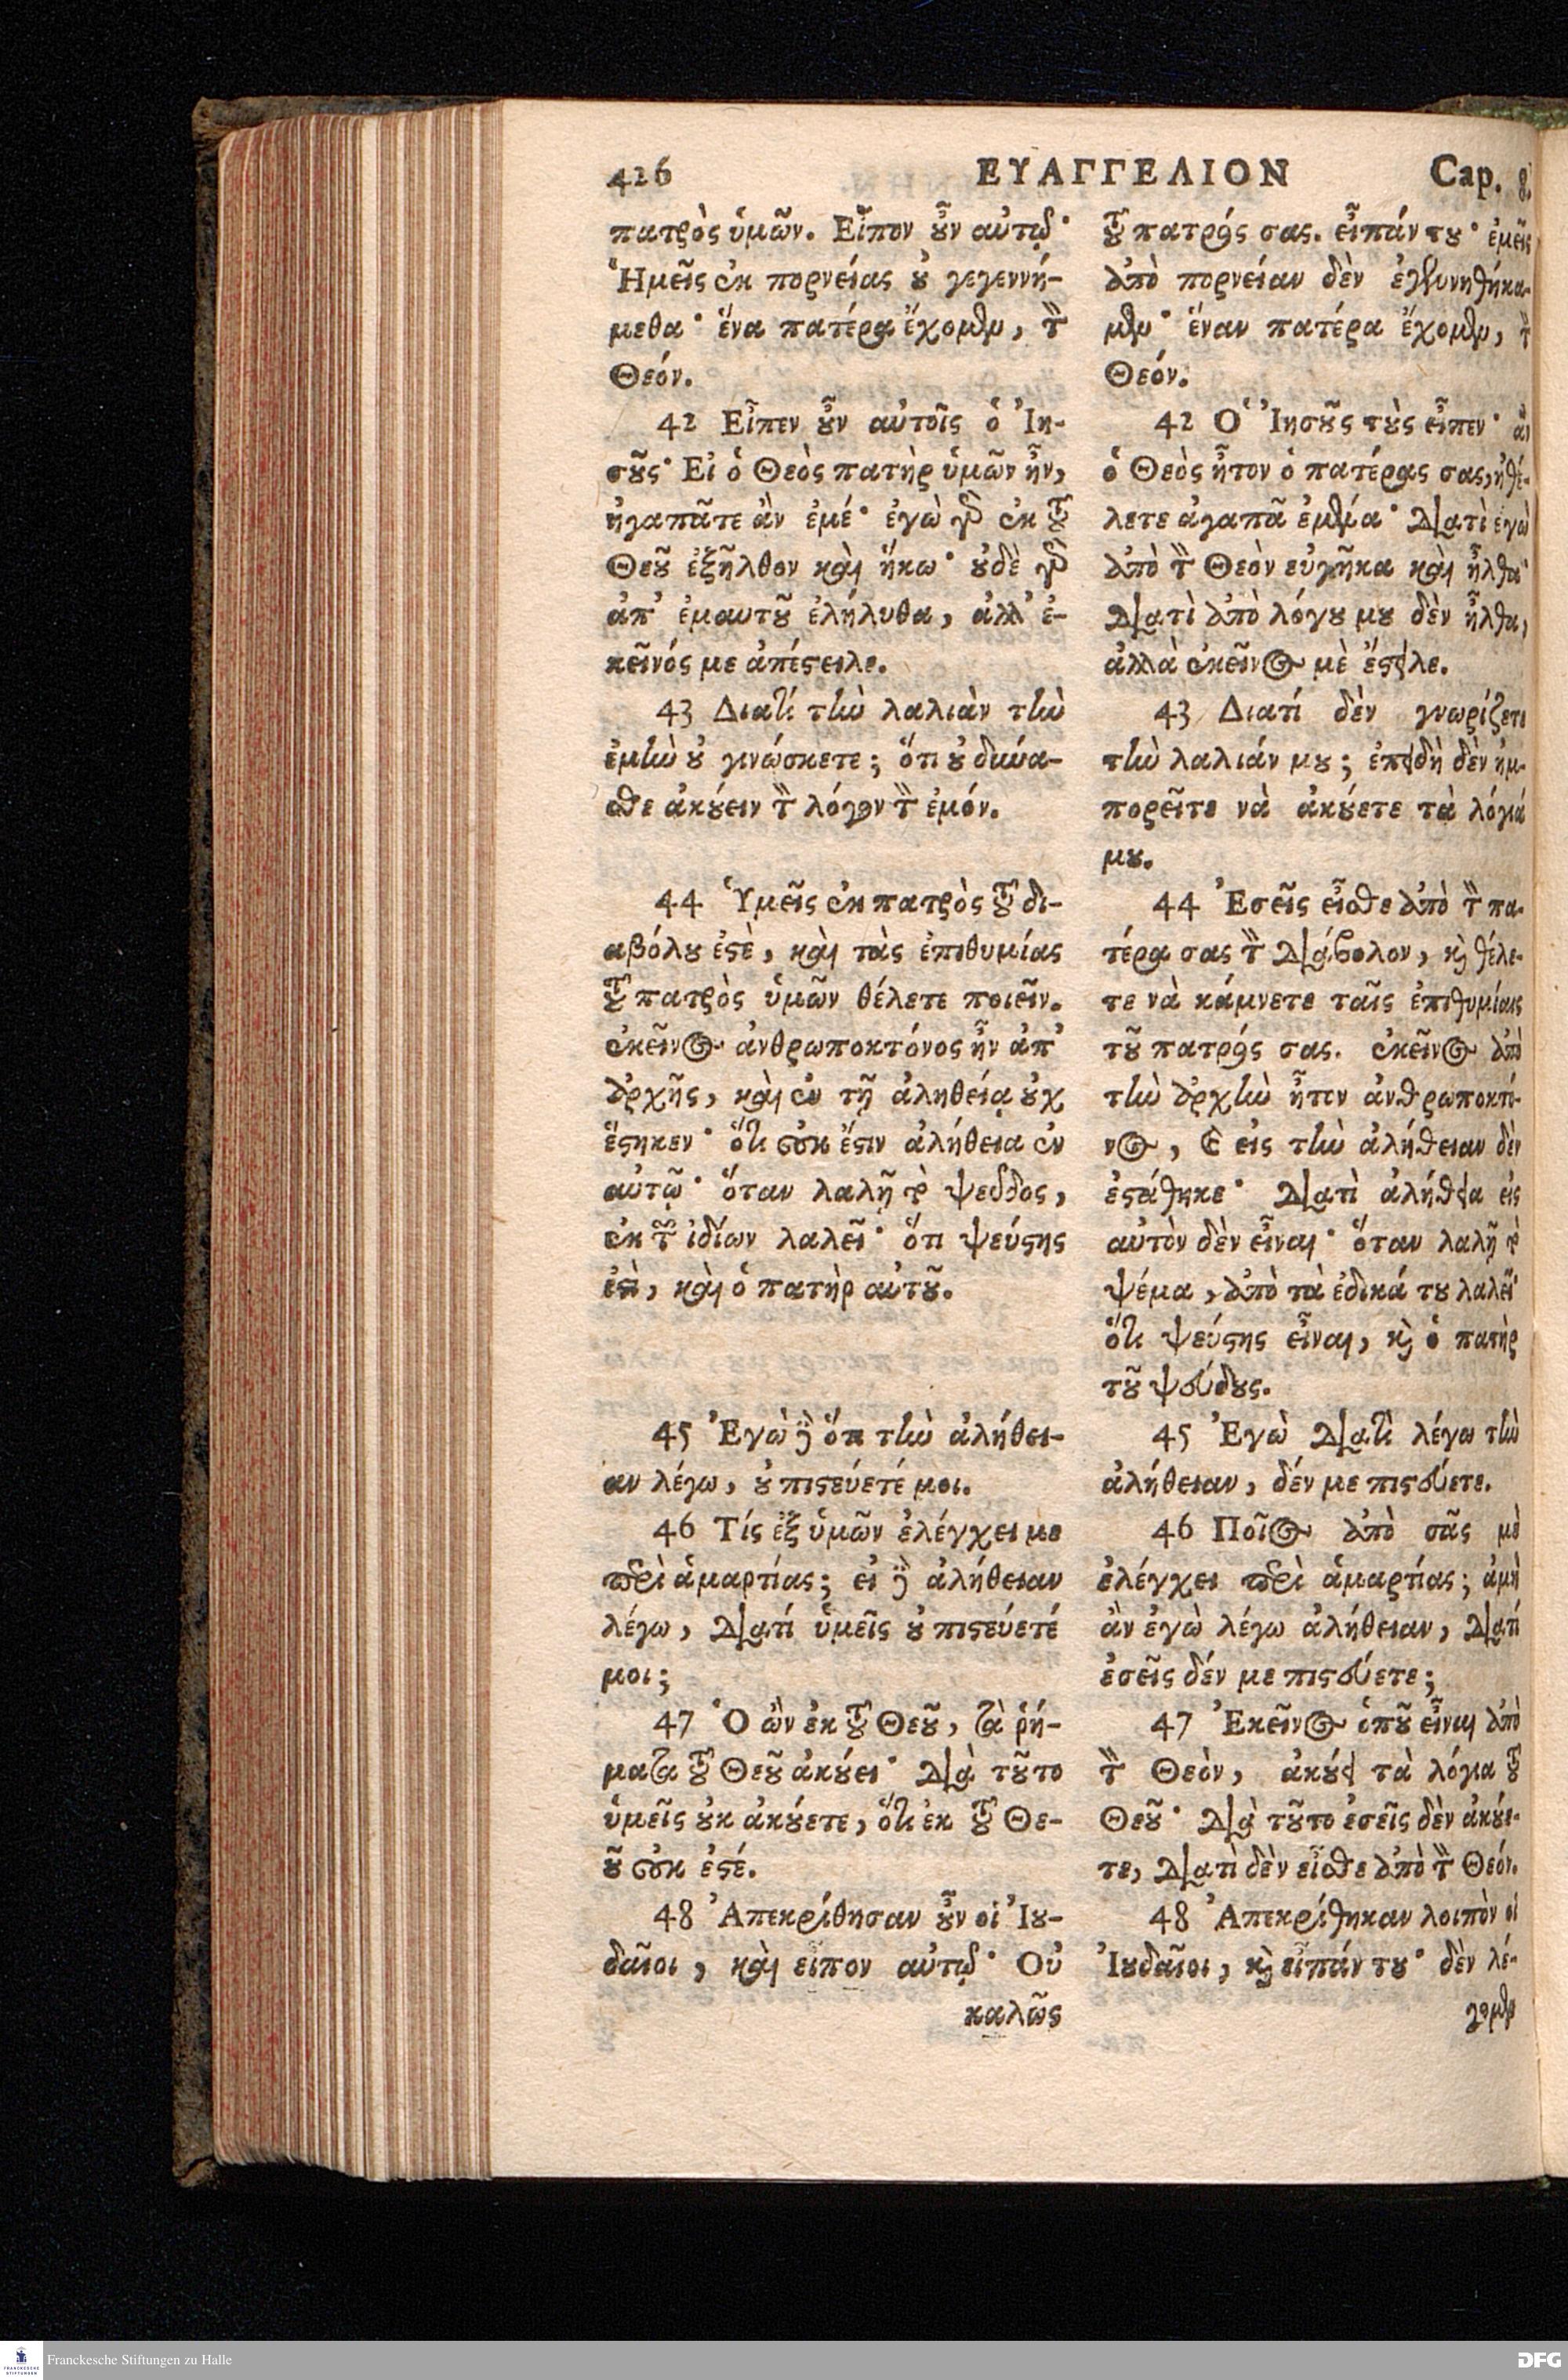 426 ΕΥΑΓΓΕΛΙΟΝ Cap. 8.
πατρὸς ὑμῶν. Εἶπον ȣ̓͂ν αὐτῷ·
Ἡμεῖς ἐκ πορνείας ȣ̓ γεγεννή-
μεθα· ἕνα πατέρα ἔχομεν, τὸν
Θεόν.
42 Εἶπεν ȣ̓͂ν αὐτοῖς ὁ Ἰη-
σȣ͂ς· Εἰ ὁ Θεὸς πατὴρ ὑμῶν ἦν,
ἠγαπᾶτε ἂν ἐμέ· ἐγὼ γὰρ ἐκ τȣ͂
Θεȣ͂ ἐξῆλθον καὶ ἥκω· ȣ̓δὲ γὰρ
ἀπ' ἐμαυτȣ͂ ἐλήλυθα, ἀλλ' ἐ-
κεῖνός με ἀπέϛειλε.
43 Διατί τὴν λαλιὰν τὴν
ἐμὴν ȣ̓ γινώσκετε; ὅτι ȣ̓ δύνα-
σθε ἀκȣ́ειν τὸν λόγον τὸν ἐμόν.
44 Ὑμεῖς ἐκ πατρὸς τȣ͂ δι-
αβόλȣ ἐϛὲ, καὶ τὰς ἐπιθυμίας
τȣ͂ πατρὸς ὑμῶν θέλετε ποιεῖν.
ἐκεῖνος ἀνθρωποκτόνος ἦν ἀπ'
ἀρχῆς, καὶ ἐν τῇ ἀληθείᾳ ȣ̓χ
ἕϛηκεν· ὅτι ȣ̓κ ἔϛιν ἀλήθεια ἐν
αὐτῷ· ὅταν λαλῇ τὸ ψεῦδος,
ἐκ τῶν ἰδίων λαλεῖ· ὅτι ψεύϛης
ἐϛὶ, καὶ ὁ πατὴρ αὐτȣ͂.
45 Ἐγὼ δὲ ὅτι τὴν ἀλήθει-
αν λέγω, ȣ̓ πιϛεύετέ μοι.
46 Τίς ἐξ ὑμῶν ἐλέγχει με
περὶ ἁμαρτίας; εἰ δὲ ἀλήθειαν
λέγω, διατί ὑμεῖς ȣ̓ πιϛεύετέ
μοι;
47 Ὁ ὢν ἐκ τȣ͂ Θεȣ͂, τὰ ῥή-
ματα τȣ͂ Θεȣ͂ ἀκȣ́ει· διὰ τȣ͂το
ὑμεῖς ȣ̓κ ἀκȣ́ετε, ὅτι ἐκ τȣ͂ Θε-
ȣ͂ ȣ̓κ ἐϛέ.
48 Ἀπεκρίθησαν ȣ̓͂ν οἱ Ἰȣ-
δαῖοι, καὶ εἶπον αὐτῷ· Οὐ
καλῶς
τȣ͂ πατρός σας. εἶπάν τȣ· ἐμεῖς
ἀπὸ πορνείαν δὲν ἐγεννηθήκα-
μεν· ἕναν πατέρα ἔχομεν, τὸν
Θεόν.
42 Ὁ Ἰησȣ͂ς τȣ̀ς εἶπεν· ἂν
ὁ Θεὸς ἦτον ὁ πατέρας σας, ἠθέ-
λετε ἀγαπᾶ ἐμένα· διατὶ ἐγὼ
ἀπὸ τὸν Θεὸν εὐγῆκα καὶ ἦλθα·
διατὶ ἀπὸ λόγȣ μȣ δὲν ἦλθα,
ἀλλὰ ἐκεῖνος μὲ ἔϛειλε.
43 Διατί δὲν γνωρίζετε
τὴν λαλιάν μȣ; ἐπειδὴ δὲν ἠμ-
πορεῖτε νὰ ἀκȣ́ετε τὰ λόγιά
μȣ.
44 Ἐσεῖς εἶσθε ἀπὸ τὸν πα-
τέρα σας τὸν διάβολον, κὶ θέλε-
τε νὰ κάμνετε ταῖς ἐπιθυμίαις
τȣ͂ πατρός σας. ἐκεῖνος ἀπὸ
τὴν ἀρχὴν ἦτον ἀνθρωποκτό-
νος, καὶ εἰς τὴν ἀλήθειαν δὲν
ἐϛάθηκε· διατὶ ἀλήθεια εἰς
αὐτὸν δὲν εἶναι· ὅταν λαλῇ τὸ
ψέμα, ἀπὸ τὰ ἐδικά τȣ λαλεῖ·
ὅτι ψεύϛης εἶναι, κὶ ὁ πατὴρ
τȣ͂ ψεύδȣς.
45 Ἐγὼ διατὶ λέγω τὴν
ἀλήθειαν, δέν με πιϛεύετε.
46 Ποῖος ἀπὸ σᾶς μὲ
ἐλέγχει περὶ ἁμαρτίας; ἀμὴ
ἂν ἐγὼ λέγω ἀλήθειαν, διατί
ἐσεῖς δέν με πιϛεύετε;
47 Ἐκεῖνος ὁπȣ͂ εἶναι ἀπὸ
τὸν Θεὸν, ἀκȣ́ει τὰ λόγια τȣ͂
Θεȣ͂· διὰ τȣ͂το ἐσεῖς δὲν ἀκȣ́ε-
τε, διατὶ δὲν εἶσθε ἀπὸ τὸν Θεόν.
48 Ἀπεκρίθηκαν λοιπὸν οἱ
Ἰȣδαῖοι, κὶ εἶπάν τȣ· δὲν λέ-
γομεν
FRANCKESCHE STIFTUNGEN
Franckesche Stiftungen zu Halle
DFG